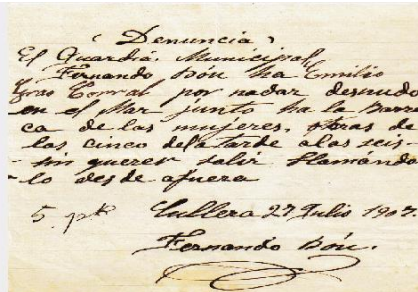 Denuncia
El Guardia. Municipal
Fernando Bón ha Emilio
Gras Corral por nadar desnudo
en el Mar junto ha la Barra
ca de las mujeres. otras de
las cinco de la tarde a las seis-
sin querer salir llamándo
- lo desde afuera
5. pts Cullera 27 Julio 1907
Fernando Bón.